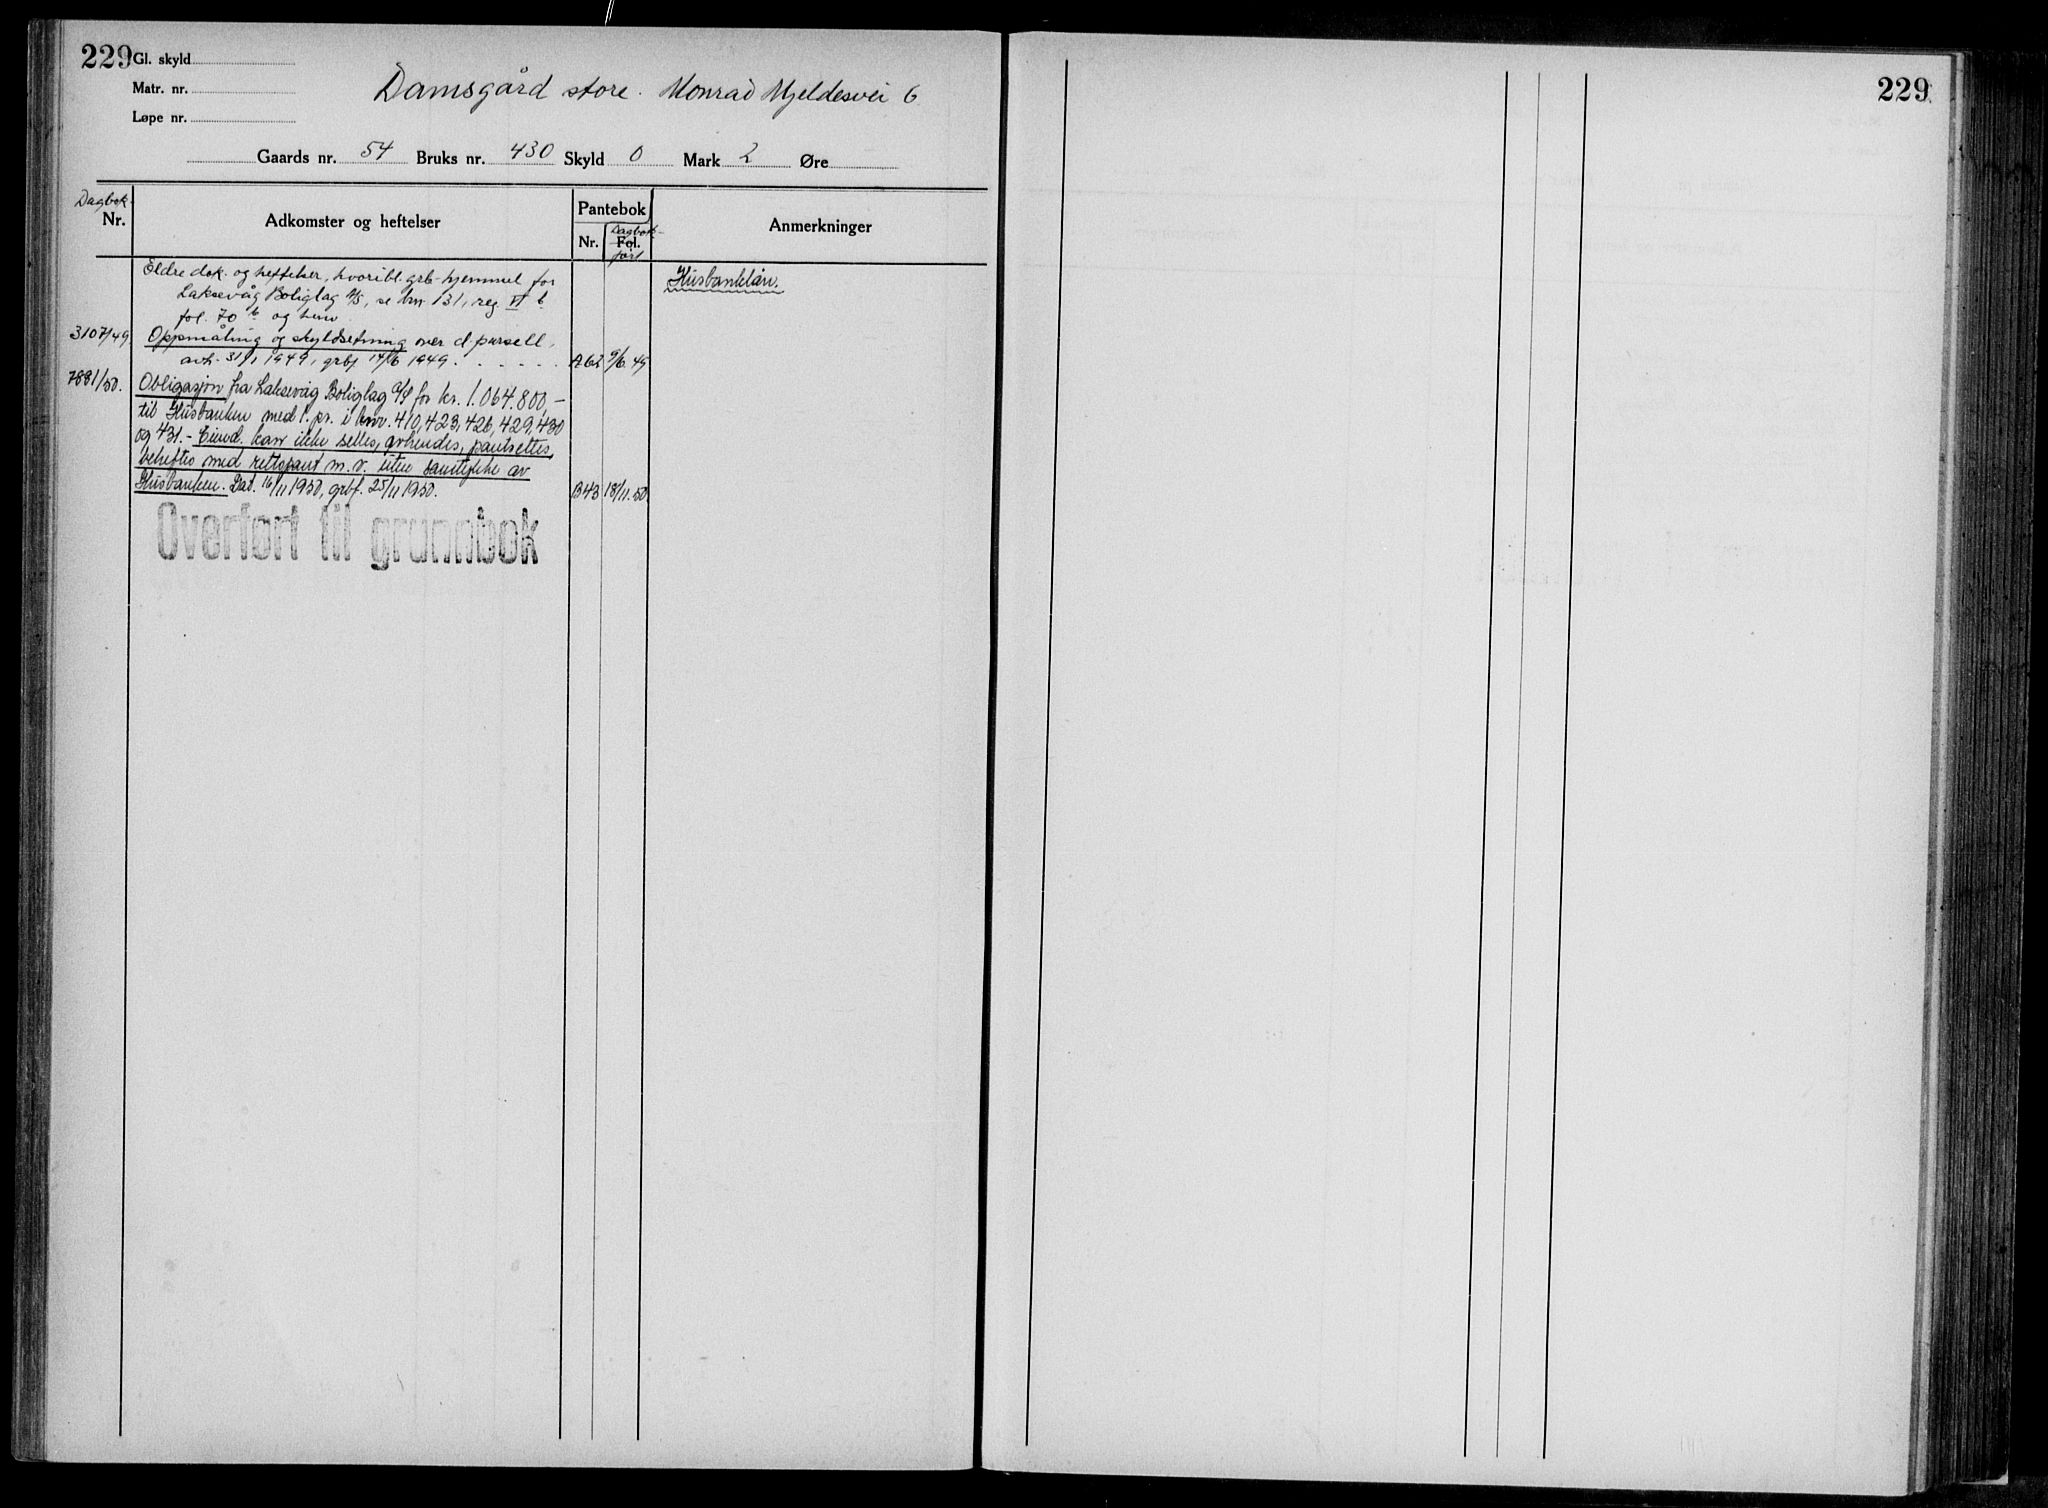 229 Gl. skyld
Matr. nr.
Løpe nr.
Damsgård store. Monrad Mjeldesvei 6
Gaards nr. 54 Bruks nr. 430 Skyld 0 Mark 2 Øre
Dagbok-
Nr.
Adkomster og heftelser
Pantebok
Nr.
Dagbok-
Fol.
ført
Anmerkninger
Eldre dok. og heftelser, hvoribl. grb-hjemmel for
Laksevåg Boliglag A/S, se bnr 131, reg. VI b
fol. 70 b og
Husbanklån.
3107/49 Oppmåling og skyldsetning over d. parsell,
avh. 31/1 1949, grbf 14/6 1949. . . . . . A62 9/6 49
7881/50. Obligasjon fra Laksevåg Boliglag A/S for kr. 1.064.800,-
til Husbanken med 1. pr. i bnr. 410, 423, 426, 429, 430
og 431. - Eiend. kan ikke selles, avhendes, pantsettes,
beheftes med rettspant m.v. uten samtykke av
Husbanken. Dat. 16/11 1950, grbf. 25/11 1950. B43 18/11. 50
Overført til grunnbok
229